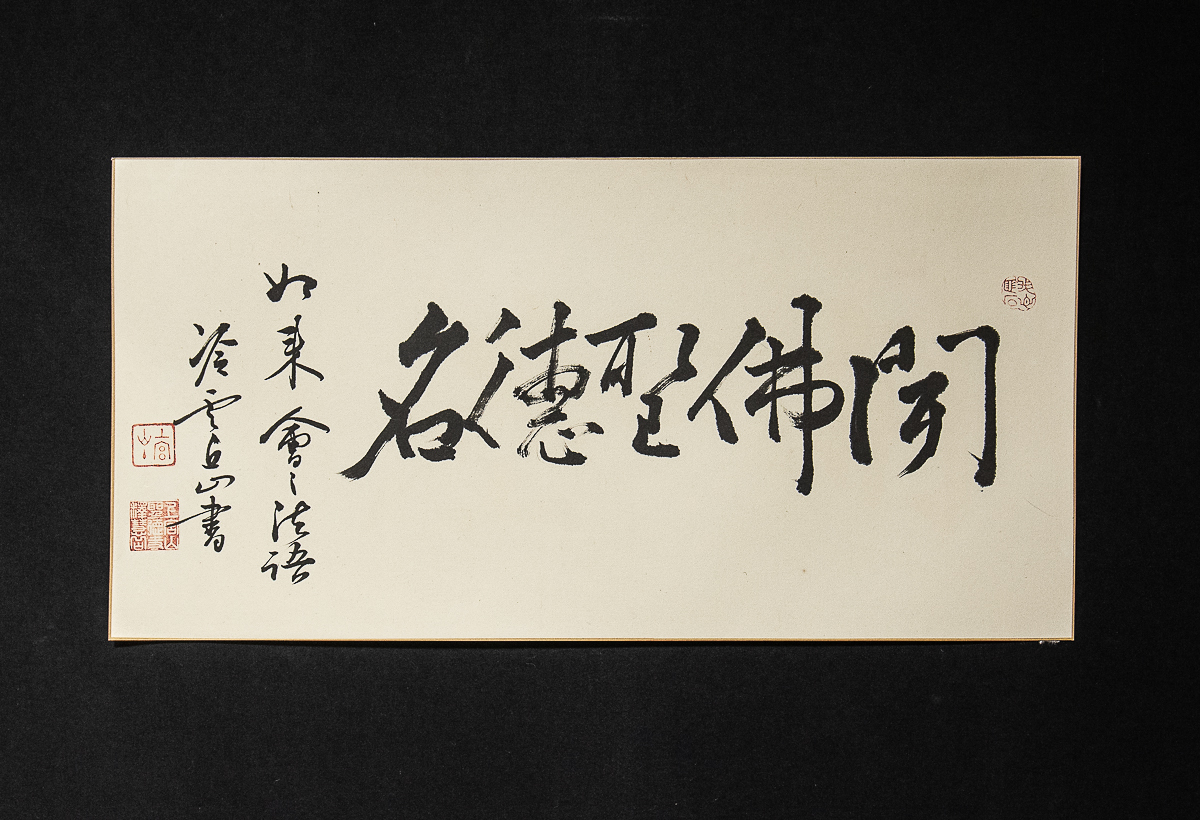 聞佛聖德名
如来會之法語
冷雲丘山書